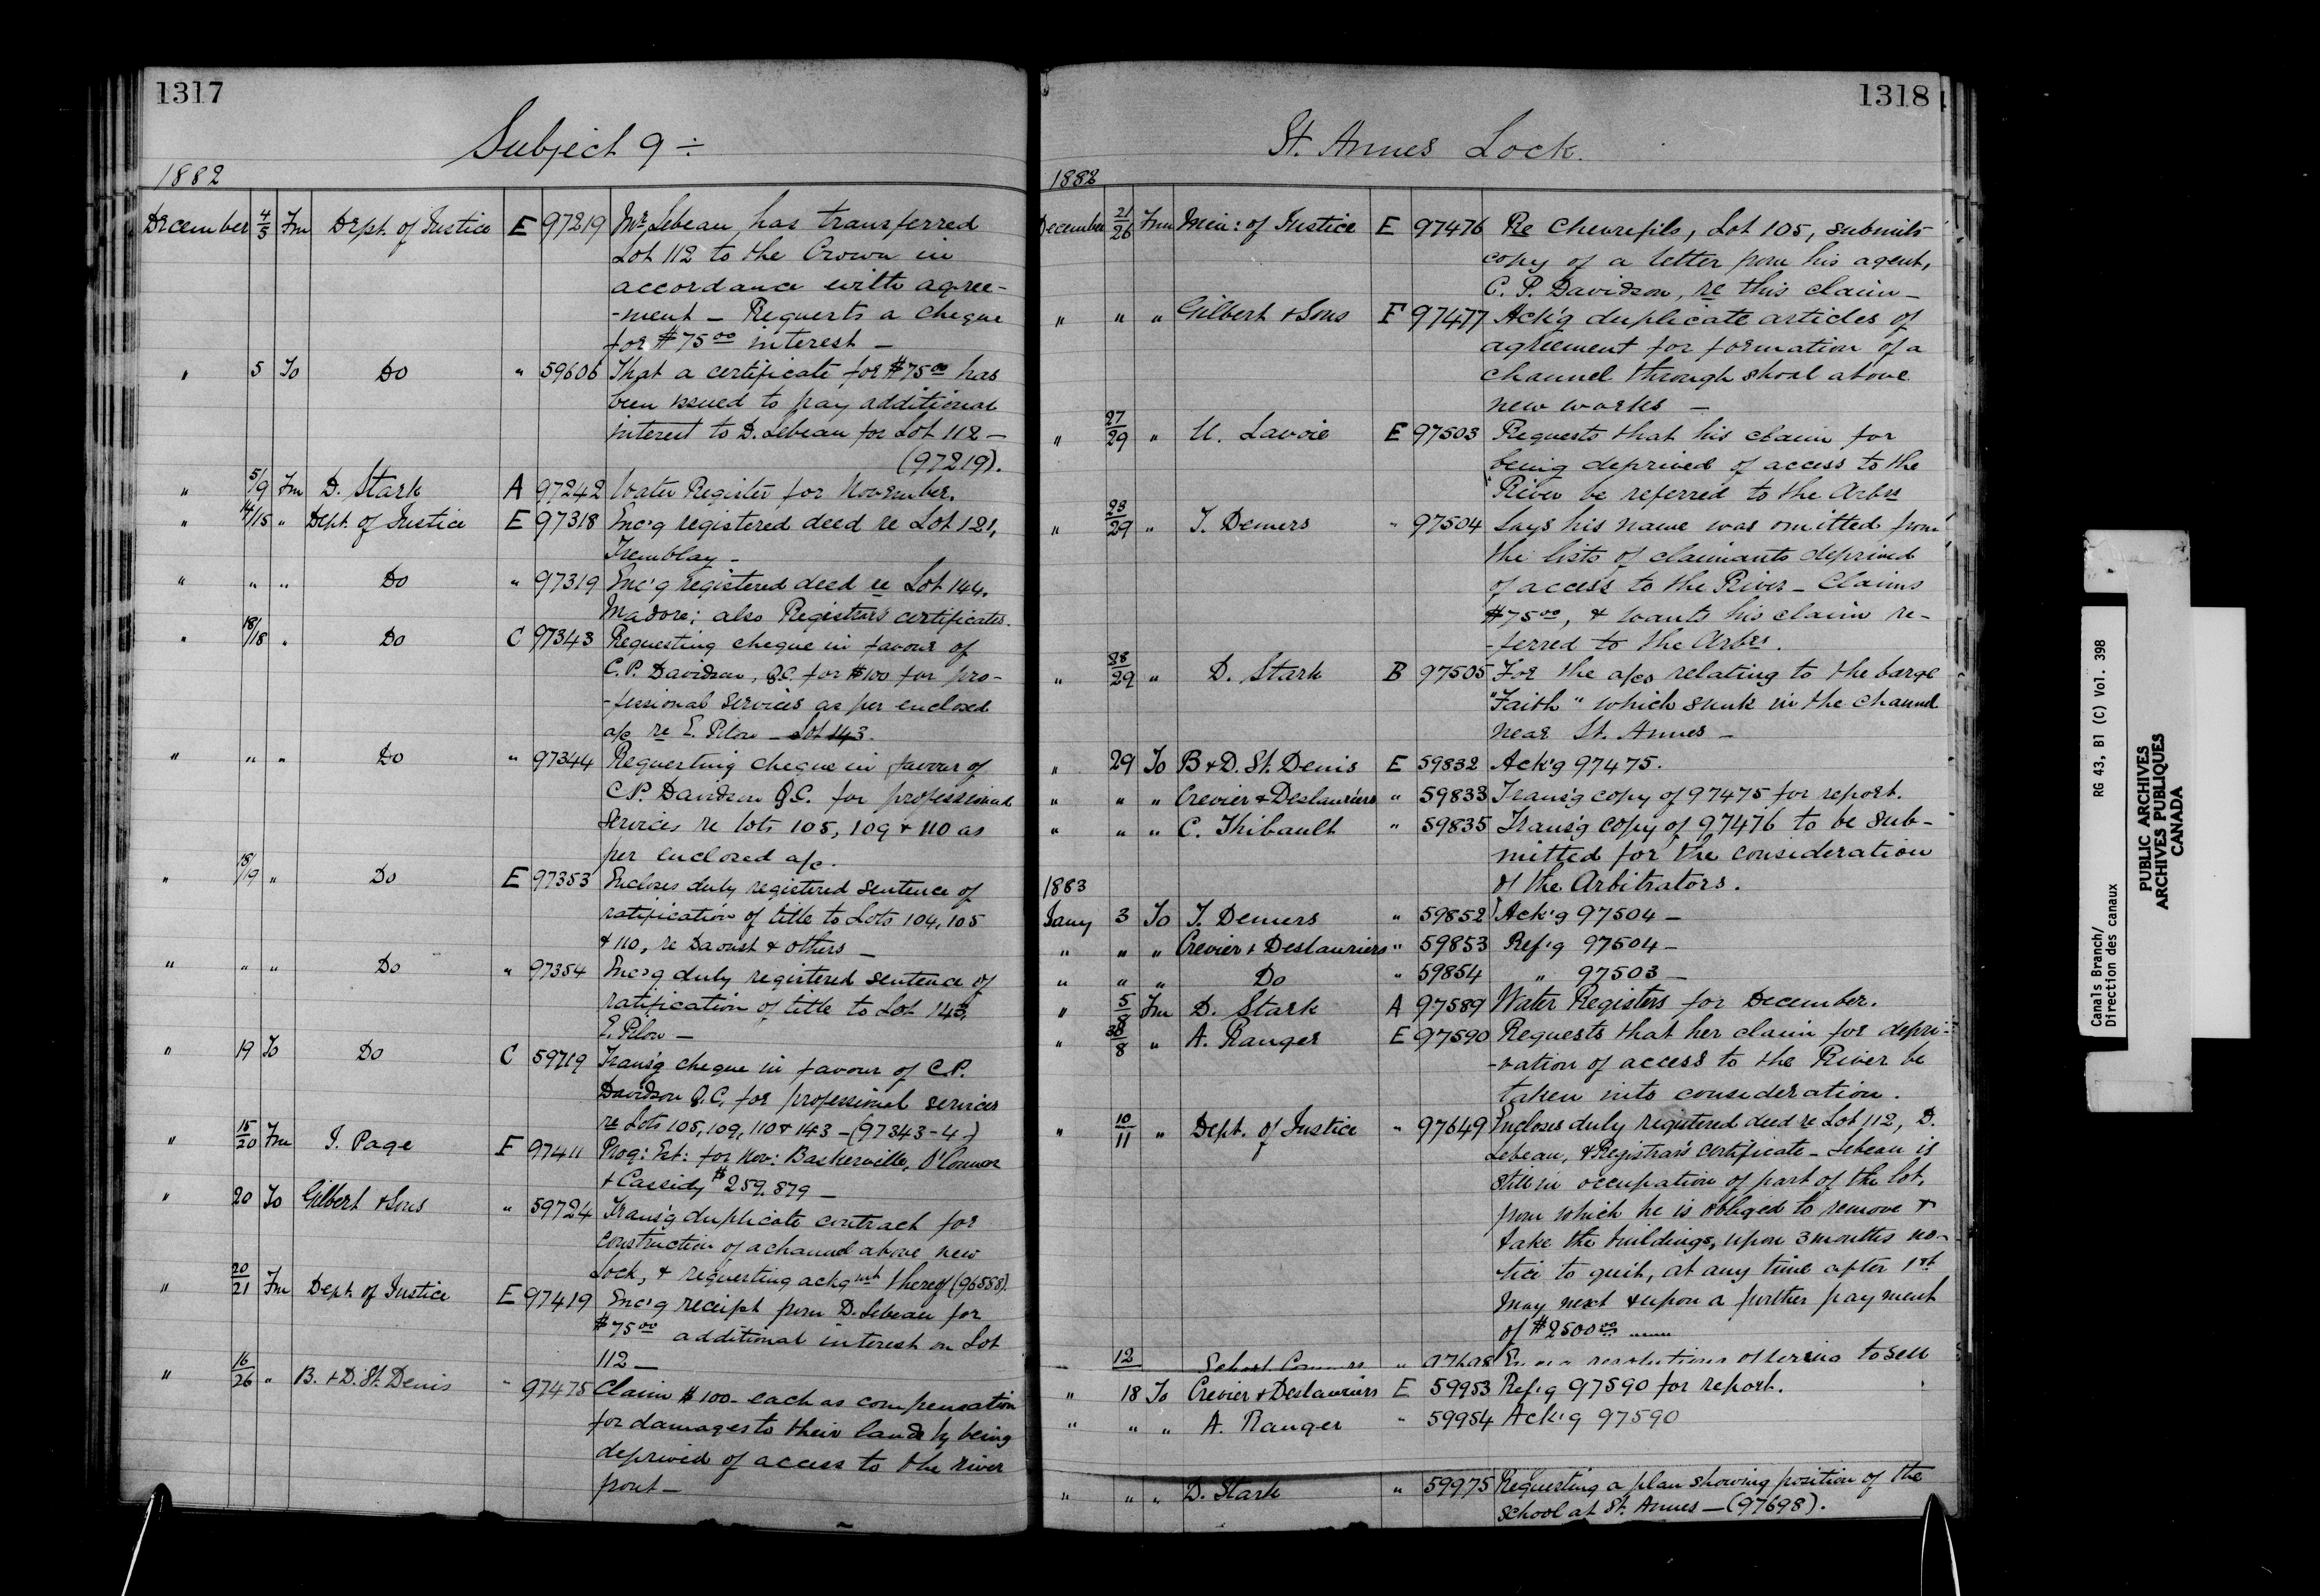 1317
Subject 9 ÷
1882
December 4/5 Fm Dept. of Justice E 97219 Mr. Lebeau, has transferred
Lot 112 to the Crown in
accordance with agree-
-ment — Requests a cheque
for $75.00 interest —
" 5 To Do " 59606 That a certificate for $75.00 has
been issued to pay additional
interest to D. Lebeau for Lot 112 —
(97219).
" 5/9 Fm D. Stark A 97242 Water Register for November.
" 14/15 " Dept. of Justice E 97318 Enc'g registered deed re Lot 121,
Tremblay —
" " " Do " 97319 Enc'g registered deed re Lot 144,
Madore; also Registrar's certificates.
" 18/18 " Do C 97343 Requesting cheque in favour of
C.P. Davidson, Q.C. for $100 for pro-
-fessional services as per enclosed
a/c re E. Pilon — Lot 143.
" " " Do " 97344 Requesting cheque in favour of
C.P. Davidson Q.C. for professional
services re lots 105, 109 & 110 as
per enclosed a/c.
" 18/19 " Do E 97353 Encloses duly registered sentence of
ratification of title to Lots 104, 105
& 110, re Daoust & others —
" " " Do " 97354 Enc'g duly registered sentence of
ratification of title to Lot 143,
E. Pilon —
" 19 To Do C 59719 Trans'g cheque in favour of C.P.
Davidson Q.C. for professional services
re Lots 105, 109, 110 & 143 — (97343-4-)
" 15/20 Fm J. Page F 97411 Prog: Est: for Nov: Baskerville, O'Connor
& Cassidy $259.879 —
" 20 To Gilbert & Sons " 59724 Trans'g duplicate contract for
construction of a channel above new
Lock, & requesting ackgmt thereof (96558).
" 20/21 Fm Dept. of Justice E 97419 Enc'g receipt from D. Lebeau for
$75.00 additional interest on Lot
112 —
" 16/26 " B. & D. St. Denis " 97475 Claim $100 — each as compensation
for damages to their lands by being
deprived of access to the river
front —
1318
St. Annes Lock.
1882
December 21/26 Fm Min: of Justice E 97476 Re Chevrefils, Lot 105, submits
copy of a letter from his agent,
C. P. Davidson, re this claim —
" " " Gilbert & Sons F 97477 Ack'g duplicate articles of
agreement for formation of a
channel through shoal above
new works —
" 27/29 " U. Lavoie E 97503 Requests that his claim for
being deprived of access to the
River be referred to the Arbrs
" 23/29 " T. Demers " 97504 Says his name was omitted from
the lists of claimants deprived
of access to the River — Claims
$75.00, & wants his claim re-
-ferred to the Arbrs.
" 28/29 " D. Stark B 97505 For the a/cs relating to the barge
"Faith" which sunk in the channel
near St. Annes —
" 29 To B & D. St. Denis E 59832 Ack'g 97475.
" " " Crevier & Deslauriers " 59833 Trans'g copy of 97475 for report.
" " " C. Thibault " 59835 Trans'g copy of 97476 to be sub-
mitted for the consideration
of the Arbitrators.
1883
Jany 3 To T. Demers " 59852 Ack'g 97504 —
" " " Crevier & Deslauriers " 59853 Ref'g 97504 —
" " " Do " 59854 " 97503 —
" 5/8 Fm D. Stark A 97589 Water Registers for December.
" 30/8 " A. Ranger E 97590 Requests that her claim for depri-
-vation of access to the River be
taken into consideration.
" 10/11 " Dept. of Justice " 97649 Encloses duly registered deed re Lot 112, D.
Lebeau, & Registrar's Certificate — Lebeau is
still in occupation of part of the lot,
from which he is obliged to remove &
take the buildings, upon 3 months no-
tice to quit, at any time after 1st
May next & upon a further payment
of $2500.00
12 School " 97698 resolutions offering to sell
" 18 To Crevier & Deslauriers E 59953 Ref'g 97590 for report.
" " " A. Ranger " 59954 Ack'g 97590
" " " D. Stark " 59975 Requesting a plan showing position of the
School at St. Annes — (97698).
Canals Branch/
Direction des canaux
RG 43, B1 (C) Vol. 398
PUBLIC ARCHIVES
ARCHIVES PUBLIQUES
CANADA